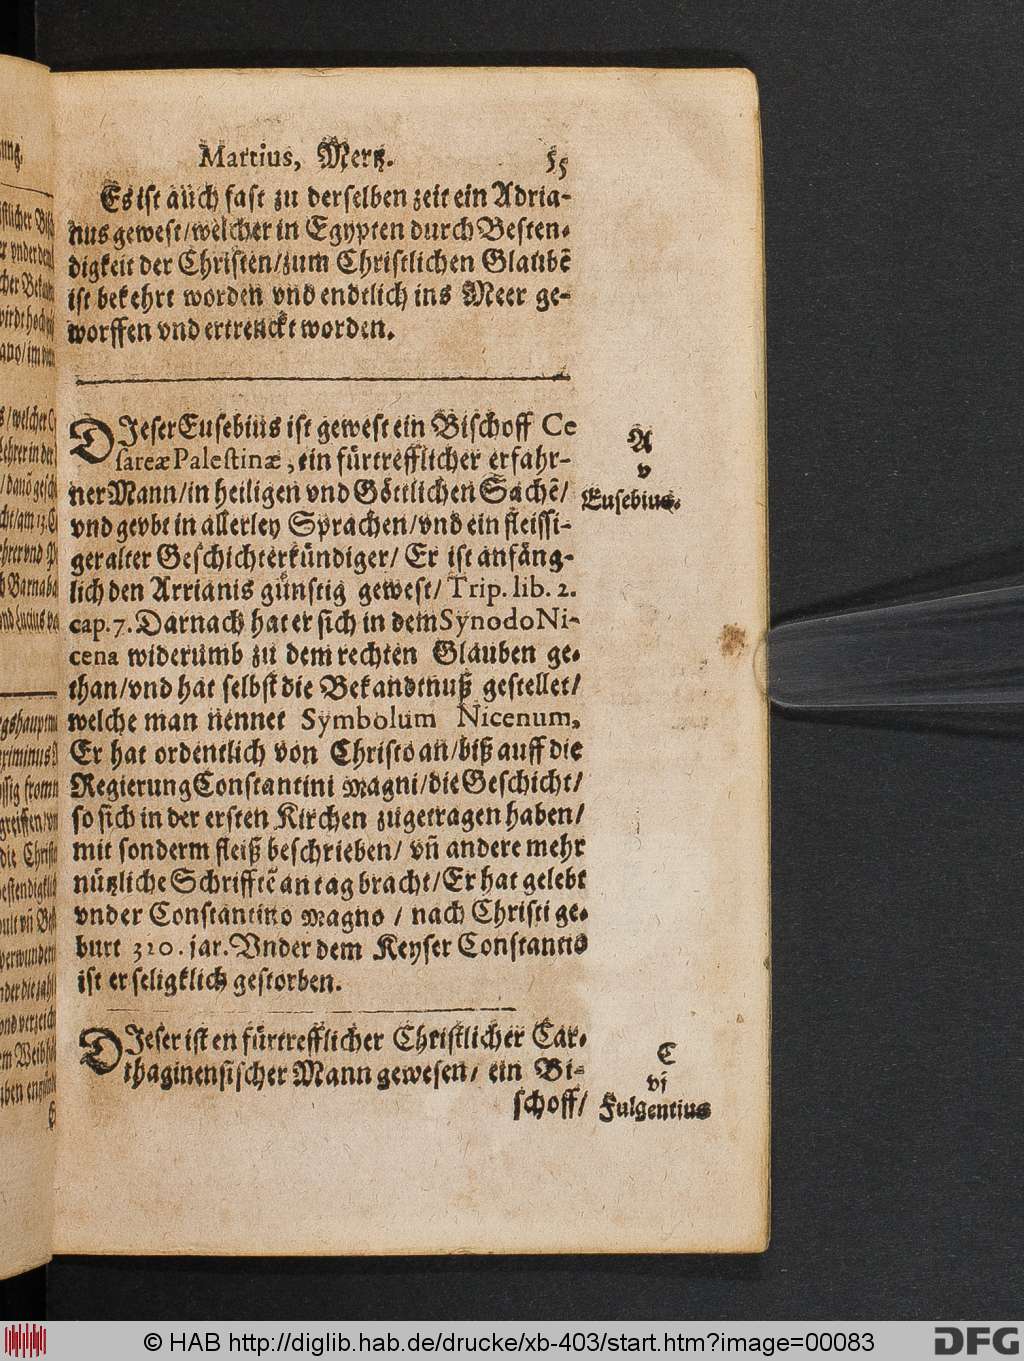 Martius, Mertz. 55
Es ist auch fast zu derselben zeit ein Adria-
nus gewest/welcher in Egypten durch Besten-
digkeit der Christen/zum Christlichen Glaubē
ist bekehrt worden vnd endtlich ins Meer ge-
worffen vnd ertrenckt worden.
DIeser Eusebius ist gewest ein Bischoff Ce
sareæ Palestinæ, ein fürtrefflicher erfahr-
ner Mann/in heiligen vnd Göttlichen Sachē/
vnd gevbt in allerley Sprachen/vnd ein fleissi-
ger alter Geschichterkündiger/ Er ist anfäng-
lich den Arrianis günstig gewest/ Trip. lib. 2.
cap. 7. Darnach hat er sich in dem Synodo Ni-
cena widerumb zu dem rechten Glauben ge-
than/vnd hat selbst die Bekandtnuß gestellet/
welche man nennet Symbolum Nicenum,
Er hat ordentlich von Christo an/biß auff die
Regierung Constantini Magni/die Geschicht/
so sich in der ersten Kirchen zugetragen haben/
mit sonderm fleiß beschrieben/ vñ andere mehr
nützliche Schrifftē an tag bracht/Er hat gelebt
vnder Constantino Magno / nach Christi ge-
burt 320. jar. Vnder dem Keyser Constantio
ist er seligklich gestorben.
A
v
Eusebius.
DIeser ist en fürtrefflicher Christlicher Car-
thaginensischer Mann gewesen/ ein Bi-
schoff/
C
vj
Fulgentius
© HAB http://diglib.hab.de/drucke/xb-403/start.htm?image=00083
DFG